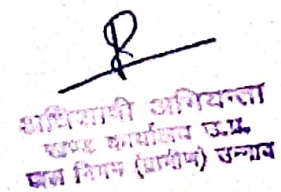 अधिशासी अभियन्ता
खण्ड कार्यालय उ.प्र.
जल निगम (ग्रामीण) उन्नाव